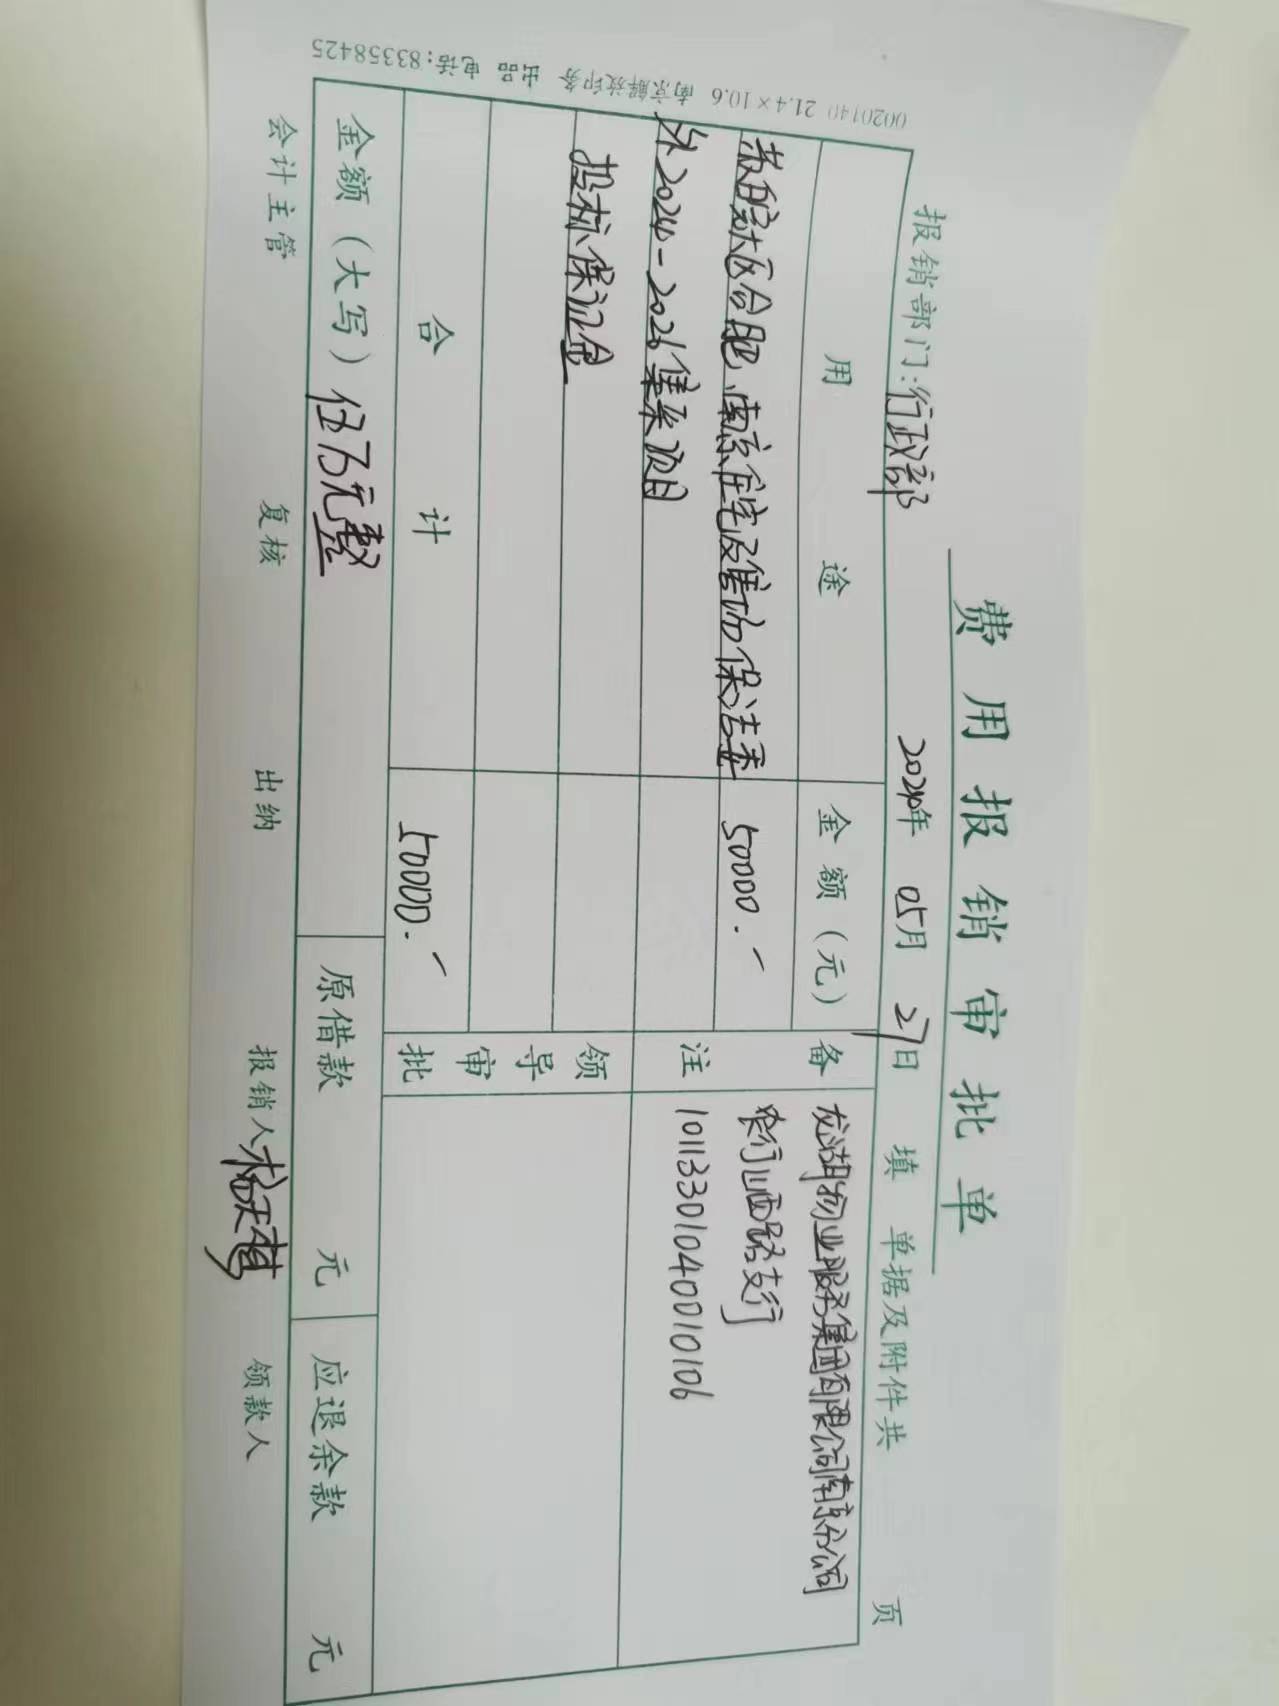 费用报销审批单
报销部门:行政部 2024年 05月 27日 填 单据及附件共 页
用途 金额(元) 备注
苏皖大区合肥、南京住宅及售场保洁委 50000.-
外2024-2026集采项目
投标保证金
龙湖物业服务集团有限公司南京分公司
农行山西路支行
10113301040010106
合计 50000.-
领导审批
金额(大写)伍万元整 原借款 元 应退余款 元
会计主管 复核 出纳 报销人 领款人
0020140 21.4×10.6 南京解放印务 出品 电话:83358425